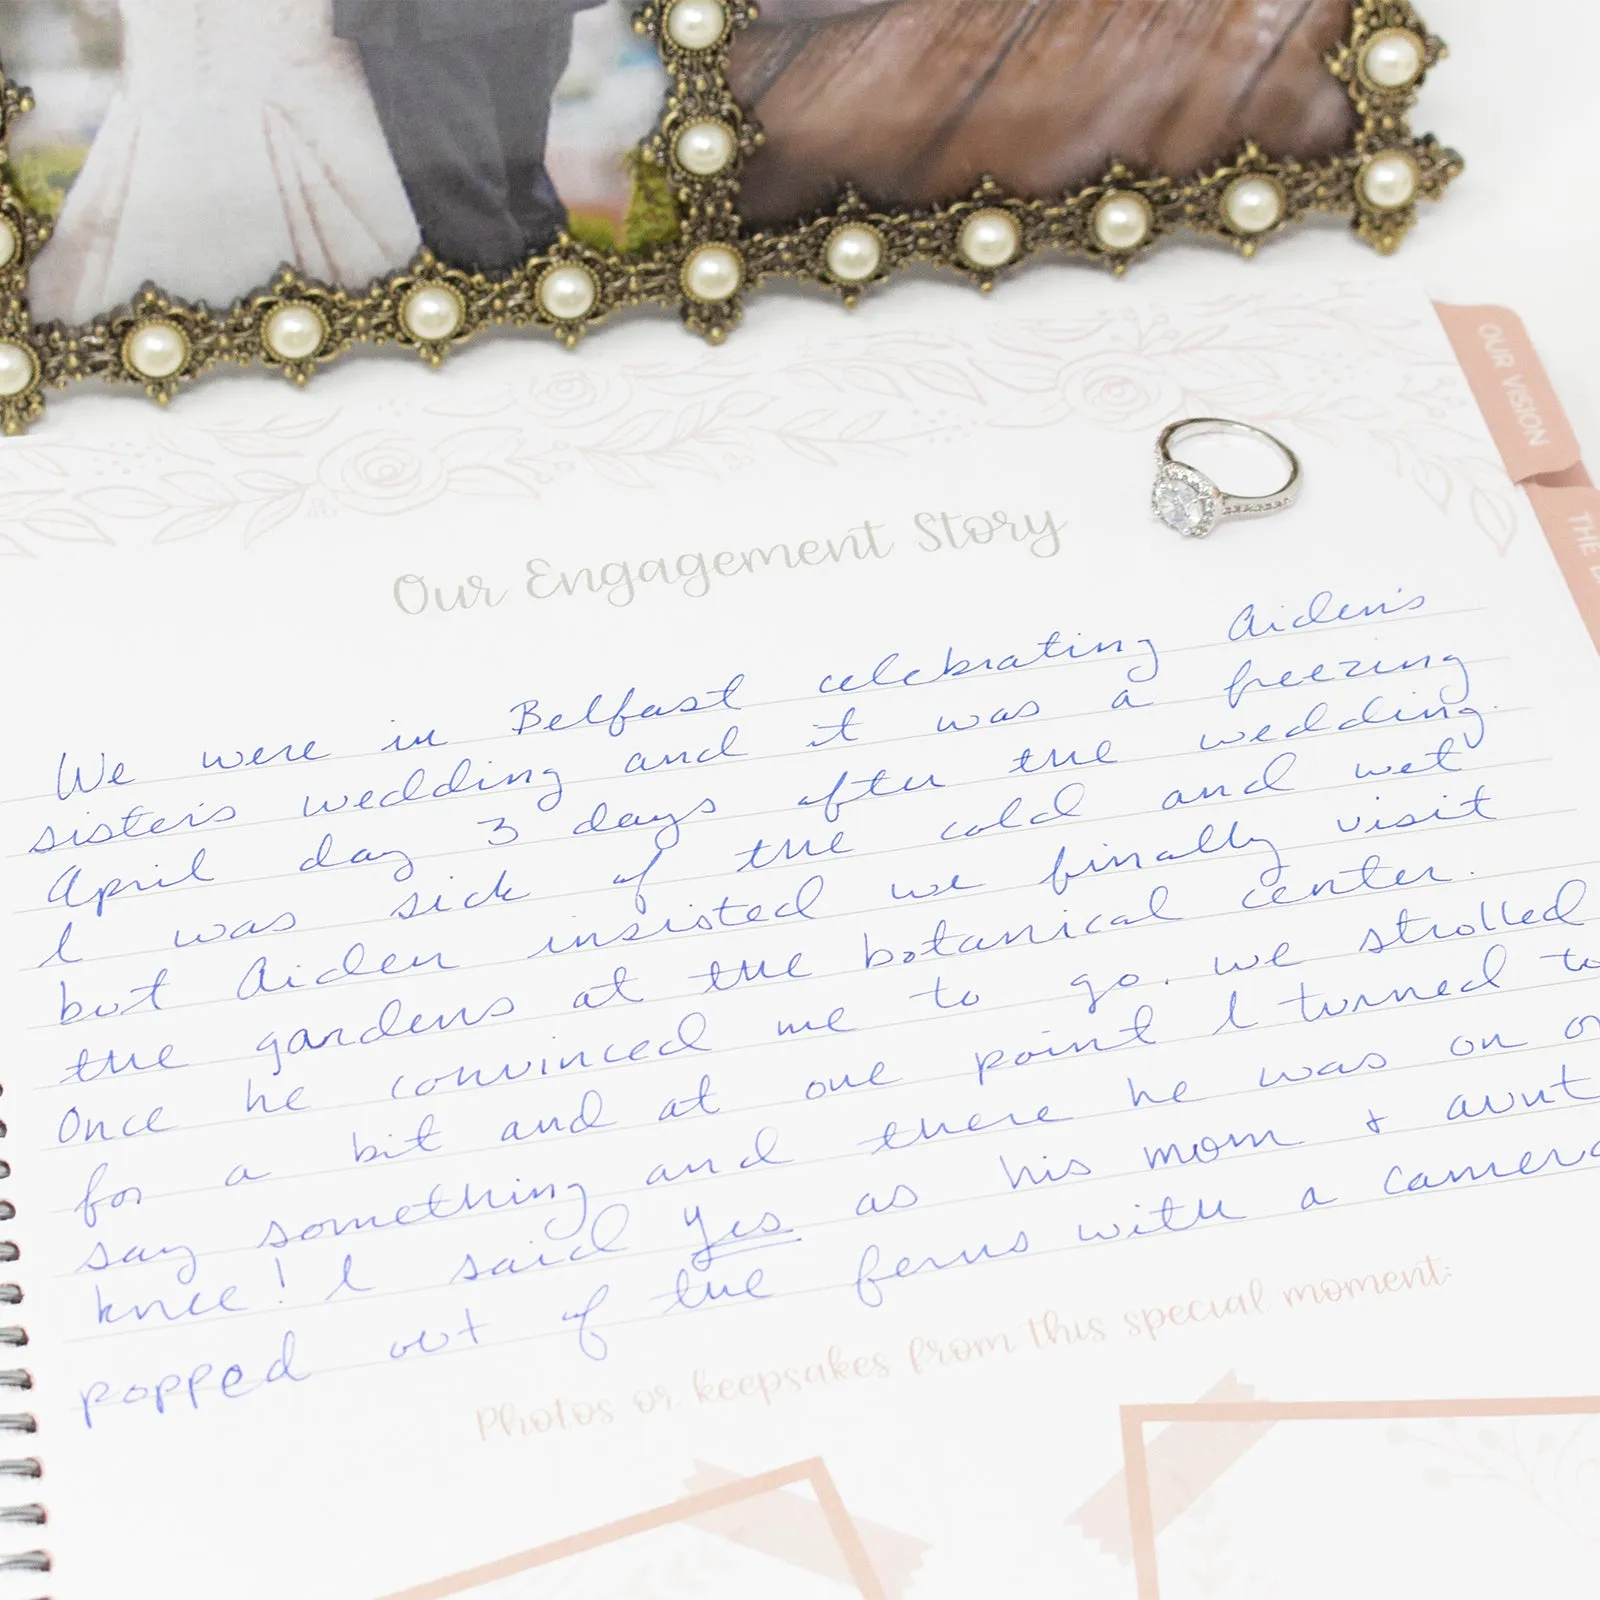 OUR VISION
THE
Our Engagement Story
We were in Belfast celebrating Aiden's
sister's wedding and it was a freezing
April day 3 days after the wedding.
I was sick of the cold and wet
but Aiden insisted we finally visit
the gardens at the botanical center.
Once he convinced me to go. we strolled
for a bit and at one point I turned to
say something and there he was on
knee! I said Yes as his mom + aunt
popped out of the ferns with a camera
Photos or keepsakes from this special moment: